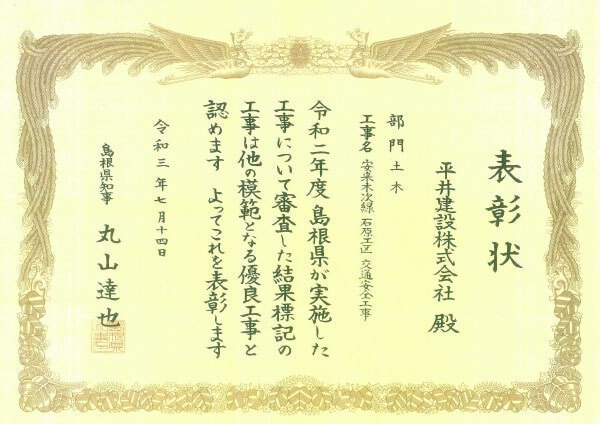 表彰状
平井建設株式会社 殿
部門 土木
工事名 安来木次線 石原工区 交通安全工事
令和二年度 島根県が実施した
工事について審査した結果標記の
工事は他の模範となる優良工事と
認めます よってこれを表彰します
令和三年七月十四日
島根県知事 丸山達也